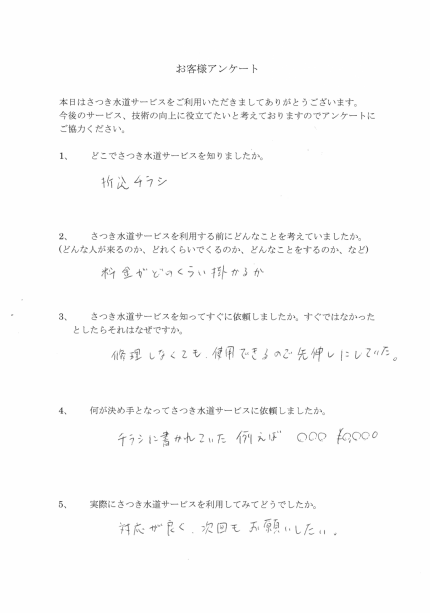 お客様アンケート
本日はさつき水道サービスをご利用いただきましてありがとうございます。
今後のサービス、技術の向上に役立てたいと考えておりますのでアンケートに
ご協力ください。
1、 どこでさつき水道サービスを知りましたか。
折込チラシ
2、 さつき水道サービスを利用する前にどんなことを考えていましたか。
(どんな人が来るのか、どれくらいでくるのか、どんなことをするのか、など)
料金がどのくらい掛かるか
3、 さつき水道サービスを知ってすぐに依頼しましたか。すぐではなかった
としたらそれはなぜですか。
修理しなくても、使用できるので先伸しにしていた。
4、 何が決め手となってさつき水道サービスに依頼しましたか。
チラシに書かれていた 例えば ○○○ ¥0,000
5、 実際にさつき水道サービスを利用してみてどうでしたか。
対応が良く、次回もお願いしたい。